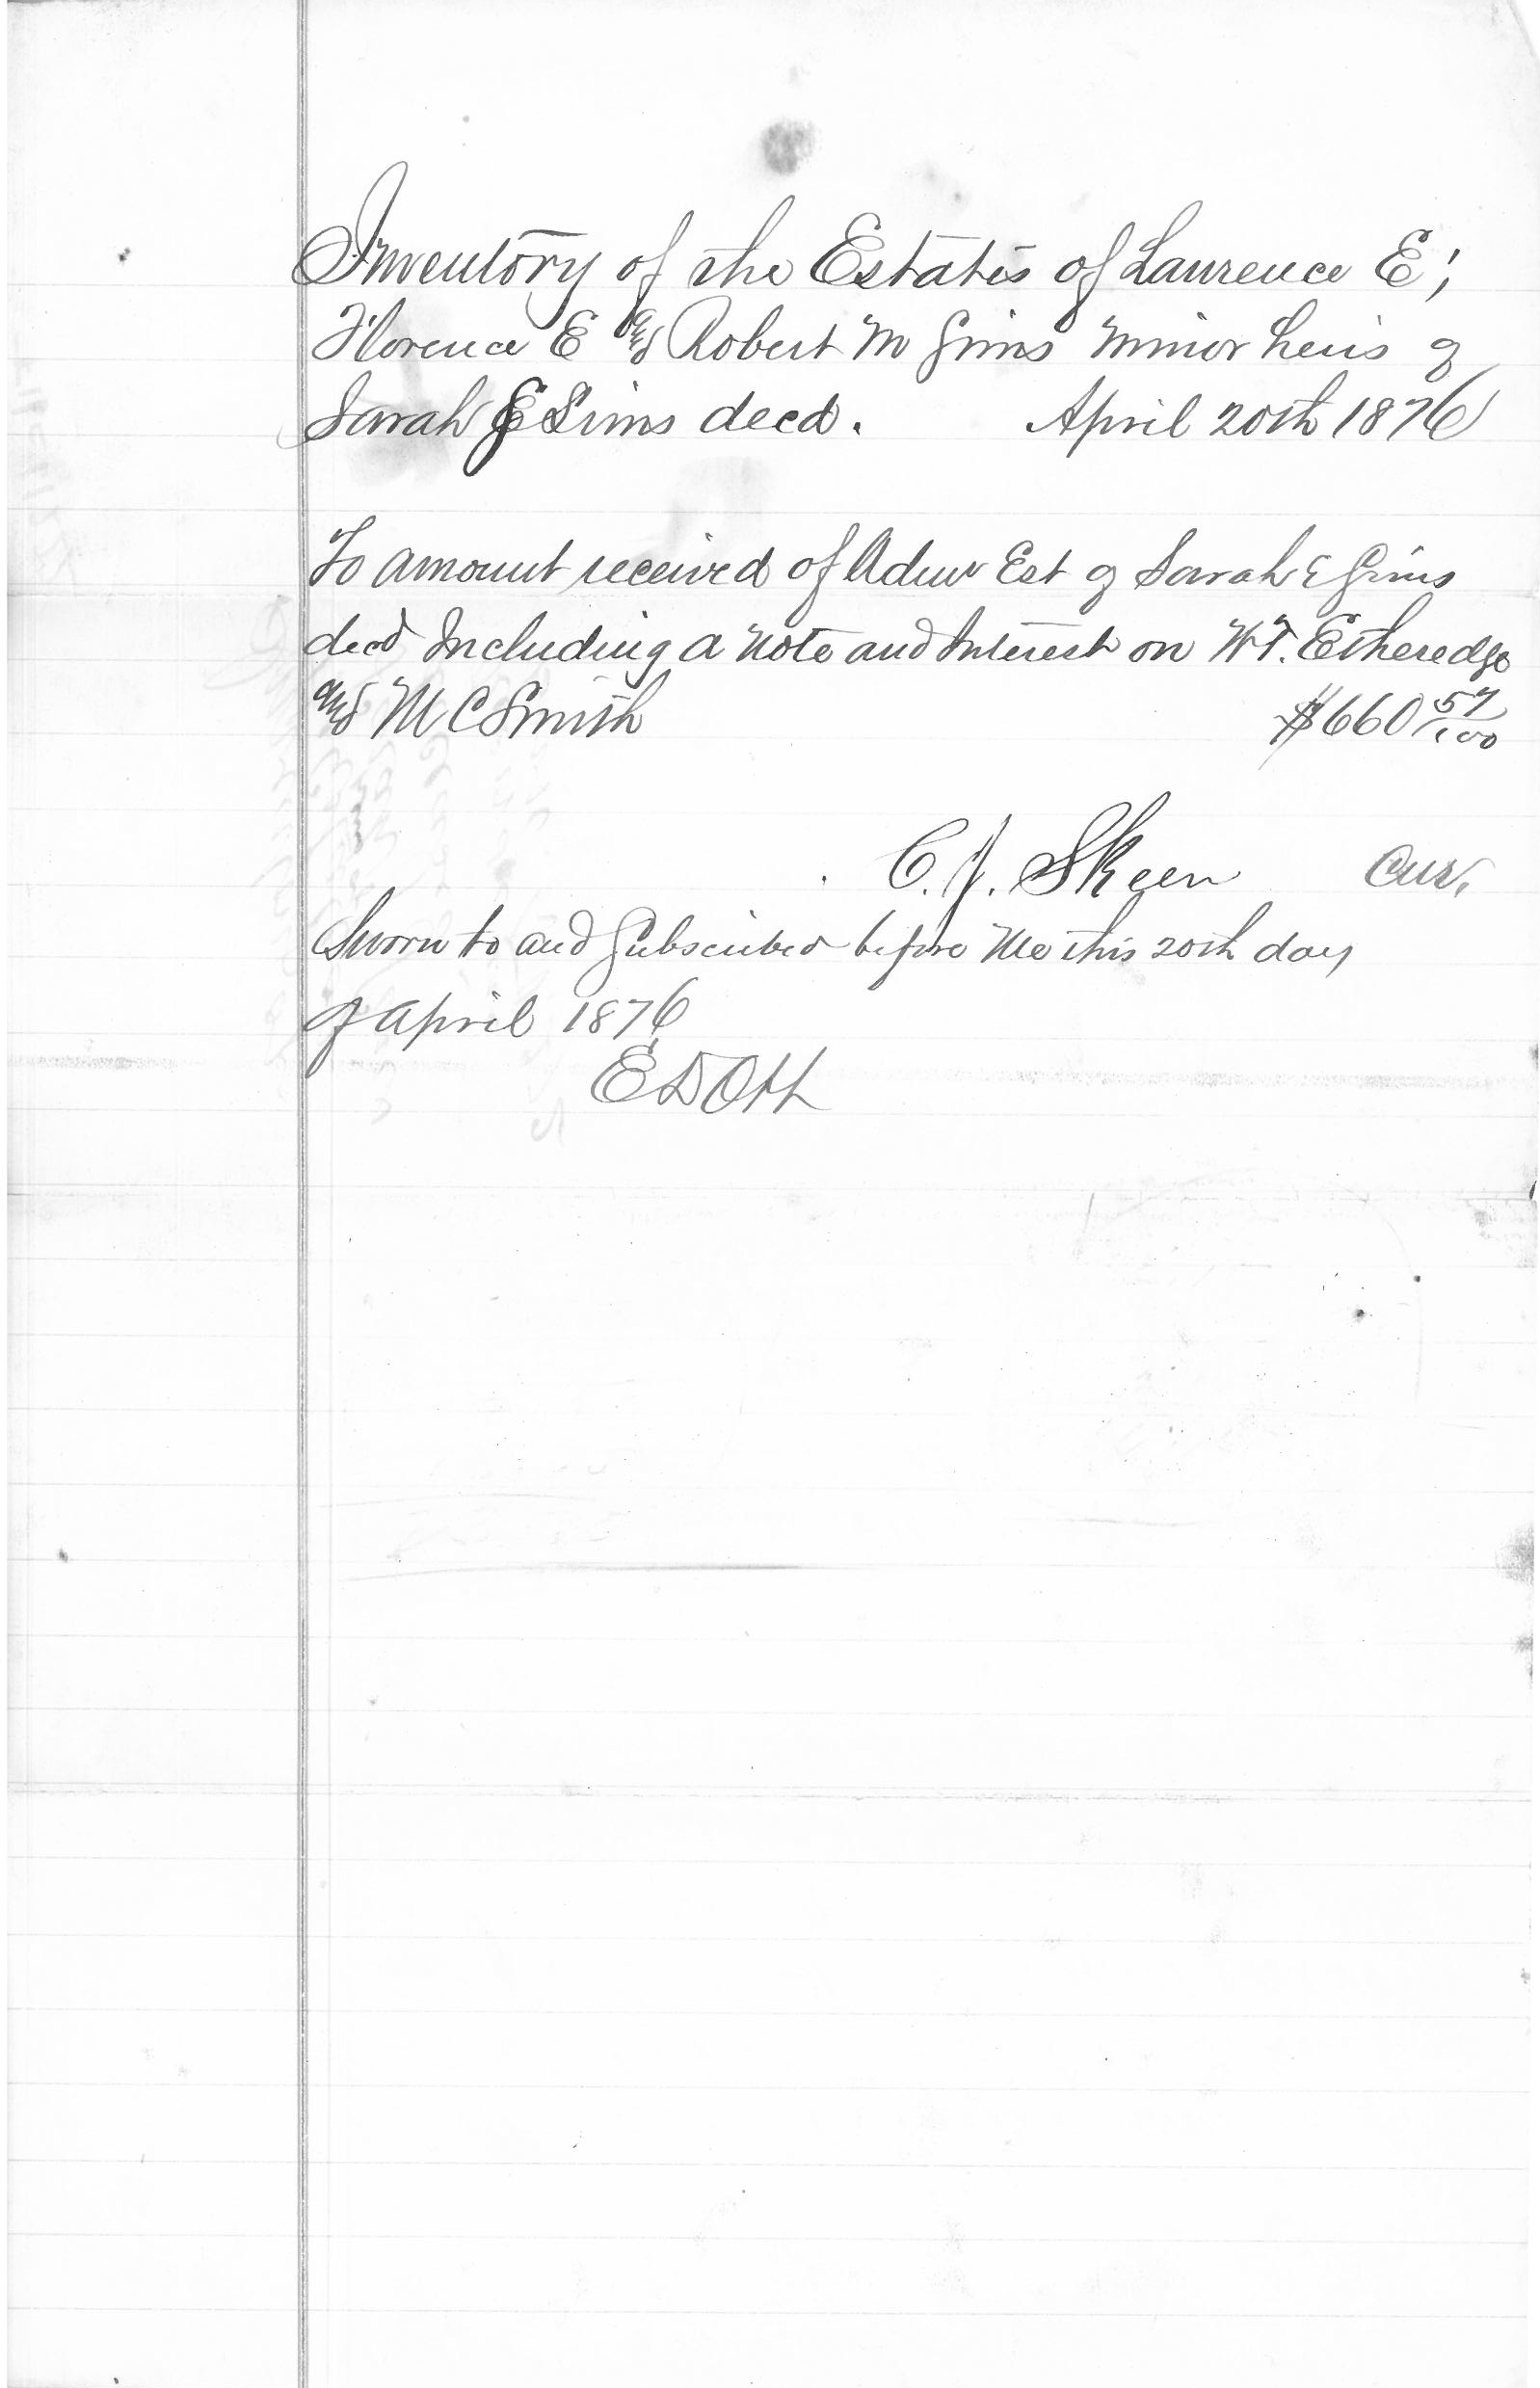 Inventory of the Estates of Laurence E;
Florence E and Robert M Sims minor heirs of
Sarah E Sims decd. April 20th 1876
To amount received of Admr Est of Sarah E Sims
decd Including a note and Interest on W.T. Etheredge
and M C Smith $660 57/100
C. J. Skeen Cur.
Sworn to and Subscribed before Me this 20th day
of April 1876
E D Ott